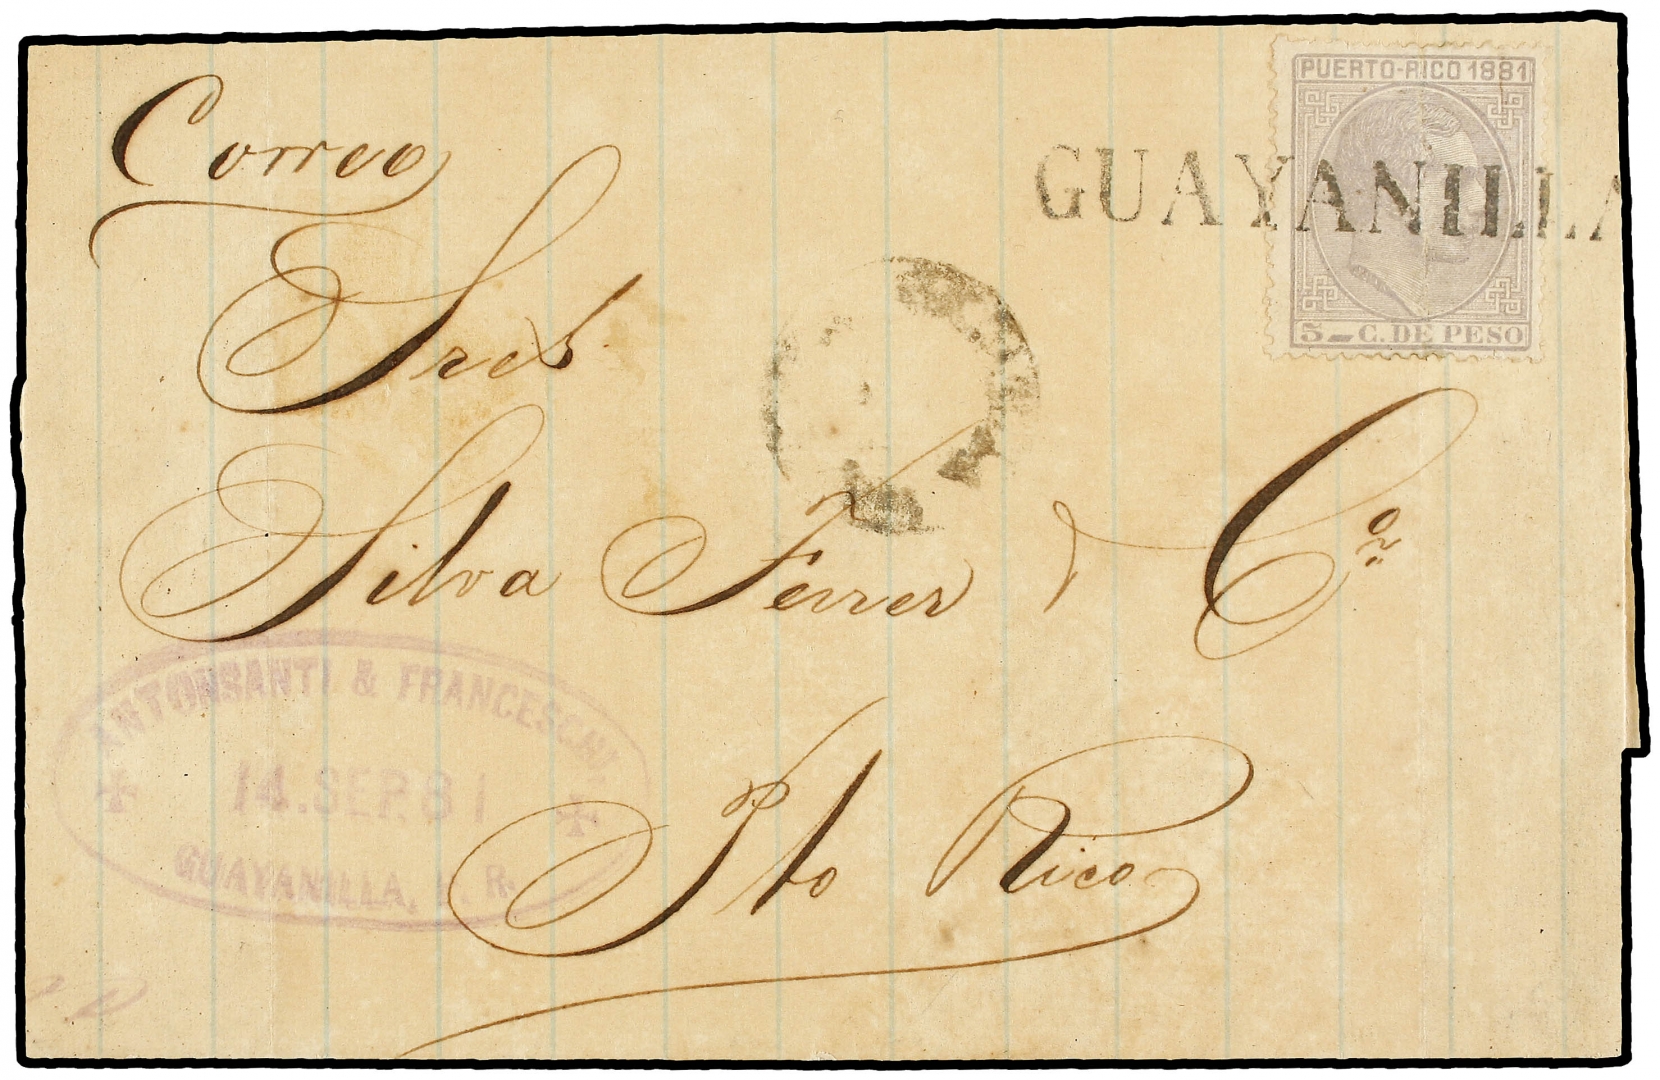 PUERTO-RICO 1881
Correo
GUAYANILLA
5 C. DE PESO
Sres
Silva Ferrer & Cª
ANTONSANTI & FRANCESCHI.
14.SEP.81
GUAYANILLA, P. R.
Pto Rico